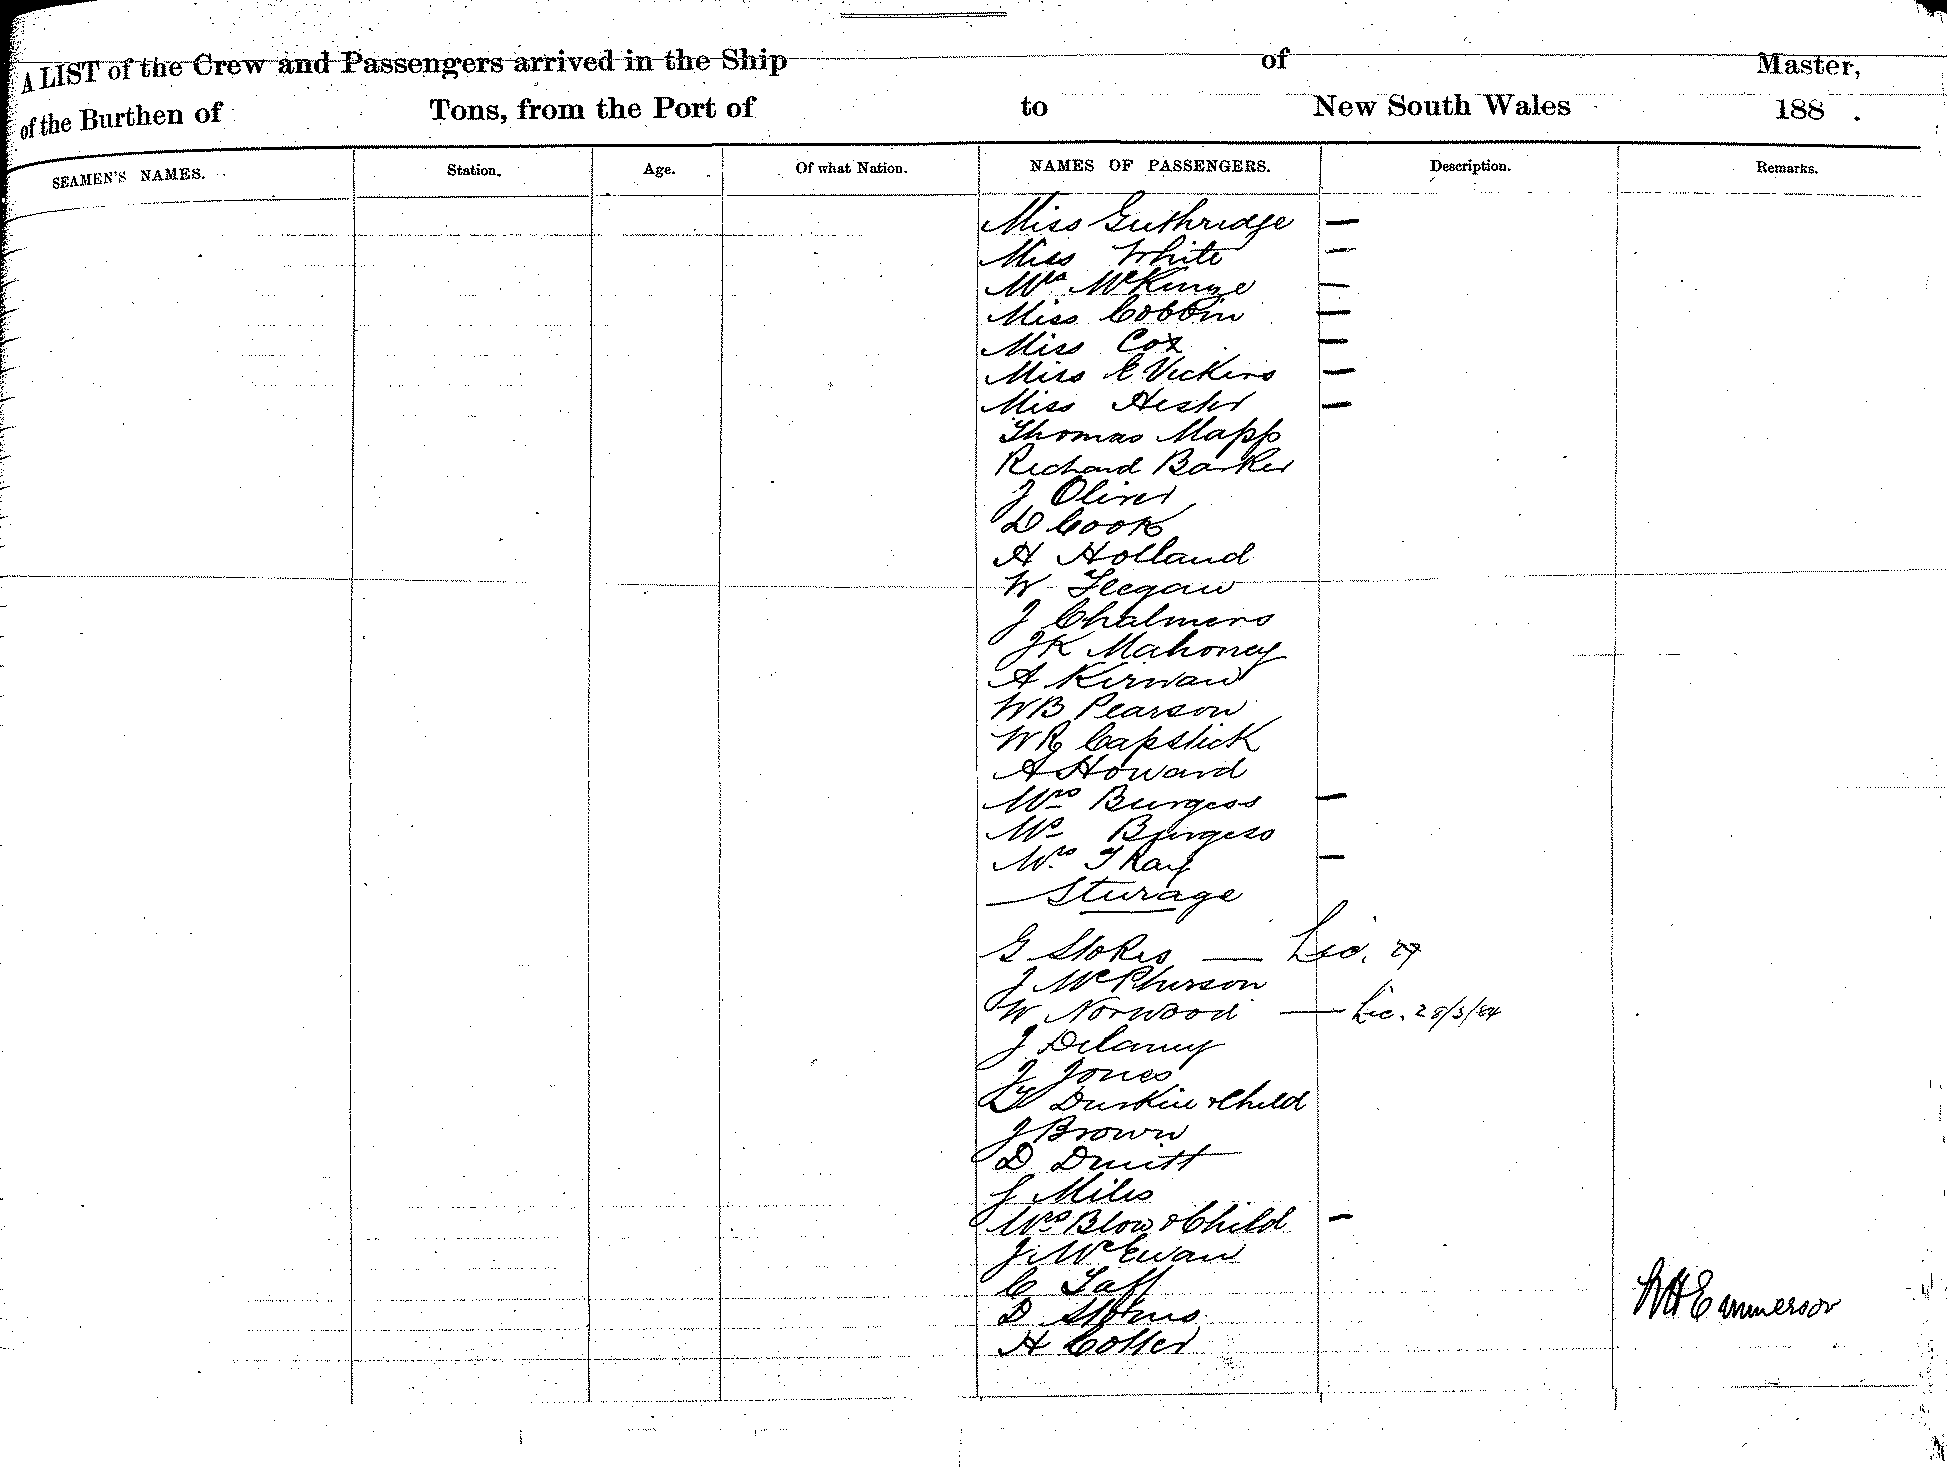 A LIST of the Crew and Passengers arrived in the Ship of Master,
of the Burthen of Tons, from the Port of to New South Wales 188 .
SEAMEN'S NAMES. Station. Age. Of what Nation. NAMES OF PASSENGERS. Description. Remarks.
Miss Guthridge —
Miss White —
McKinze —
Miss Cobbin —
Miss Cox —
Miss E Vickers —
Miss Hester —
Thomas Mapp
Richard Barker
J Oliver
D Cook
A Holland
W
J Chalmers
JK Mahoney
A Kirwan
WB Pearson
WR Capstick
A Howard
Mrs Burgess —
Mr Burgess
Mrs T Kay —
Sturage
G Stokes — Lic. 27
J McPherson
W Norwood — Lic. 28/3/84
J Delaney
J Jones
Durkin & Child
J Brown
D
J Miles
Mrs Blow & Child —
J McEwan
C Taff
D
H Cotter
WH Emmerson